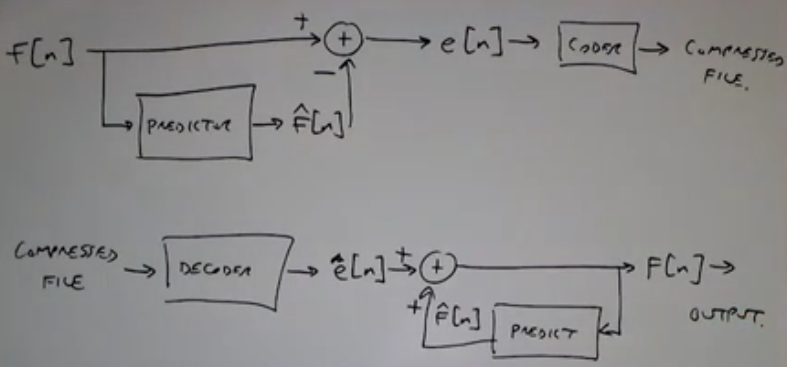 f[n]
+
+
−
e[n]
CODER
COMPRESSED
FILE.
PREDICTOR
f̂[n]
COMPRESSED
FILE
DECODER
ê[n]
+
+
F[n]
OUTPUT.
+
f̂[n]
PREDICT